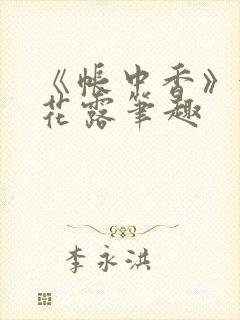 《帐中香》
花露笔趣
李永洪